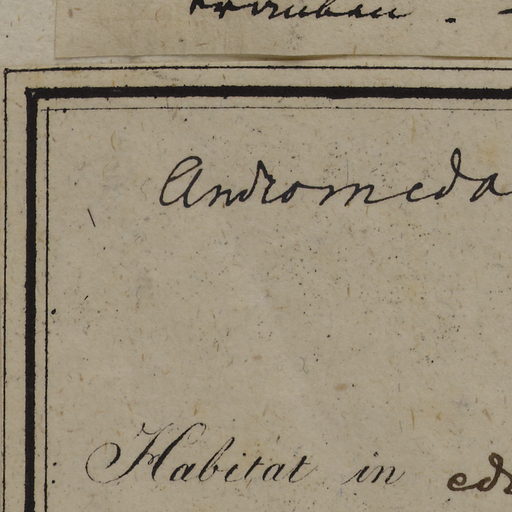 Andromeda
Habitat in